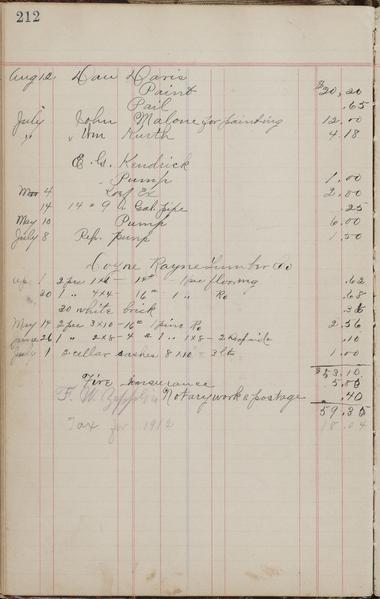 212
Aug 12 Dau Davis
Paint $20.20
Pail .65
July John Malone for painting 12.00
" " Wm Kurth 4.18
E. G. Kendrick
Pump 1.00
Mar 4 2.00
14 14 " 9 Gal. pipe .25
May 10 Pump 6.00
July 8 Rep. pump 1.50
Coyne Rayne Lumber Co
Ap. 1 2 pcs 1x4 - 14 flooring .62
20 1 " 4x4 - 16 - 1 " Ro .68
30 white brick .36
May 14 2 pcs 3x10 - 16 1 pine Ro 2.56
June 26 1 " 2x8 - 4 1 " 1x8 - 2 .10
July 1 2 cellar sashes 8x10 = 3 lt 1.00
$53.10
Fire Insurance 5.85
F. W. Notary work & postage .40
59.35
Tax for 1912 18.04